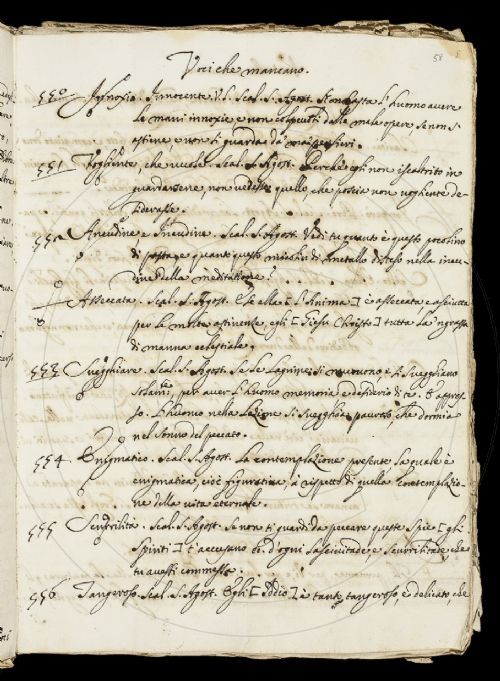 58
Voci che mancano.
550 Innoxio. Innocente V.S. Scal. S. Agost. Non basta l'huomo avere
le mani innoxie e non dalle male opere se non s'
astiene e non si guarda da' mai pensieri.
551 Vogliente, che vuole. Scal. S. Agost. Perchè egli non iscaltrito in
guardarsene, non vedesse quello, che poscia non vogliente de-
siderasse.
552 Ancudine e Incudine. Scal. S. Agost. Vedi tu quanto è questo pocolino
di pasta, e quanto questo di metallo disteso nella incu-
dine della meditatione?
Asseccata. Scal. S. Agost. Se ella [L'Anima] è asseccata, e asciutta
per la molte astinenze, egli [Giesu Christo] tutta la 'ngrassa
di manna celestiale.
553 Svegghiare. Scal. S. Agost. Se le Lagrime si muovono, e si svegghiano
solam.te per aver l'huomo memoria e desiderio di te. E appres-
so. L'huomo nella Lezione si svegghia, pauroso che dormia
nel sonno del peccato.
554 Enigmatico. Scal. S. Agost. La contemplazione presente la quale è
enigmatica, cioè figurativa, a rispetto di quella contemplazio-
ne della vita eternale.
555 Scurrilità. Scal. S. Agost. Se non ti guardi da peccare queste Spie [gli
Spiriti] t'accusano di d'ogni lascivitade, e scurrilitade che
tu avessi commessa.
556 Tangeroso. Scal. S. Agost. Egli [Iddio] è tanto tangeroso, e delicato, che